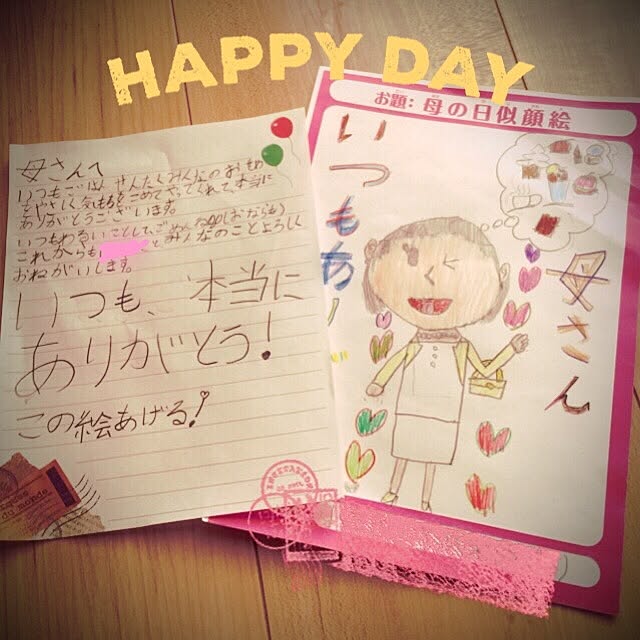 HAPPY DAY
お題: 母の日似顔絵
母さんへ
いつもごはん、せんたくみんなのおもち
とやさしく気もちをこめてやってくれて、本当に
ありがとうございます。
いつもわるいことしてごめんなさい(おならも)
これからも と みんなのことよろしく
おねがいします。
いつも、本当に
ありがとう!
この絵あげる!
いつもあり
母さん